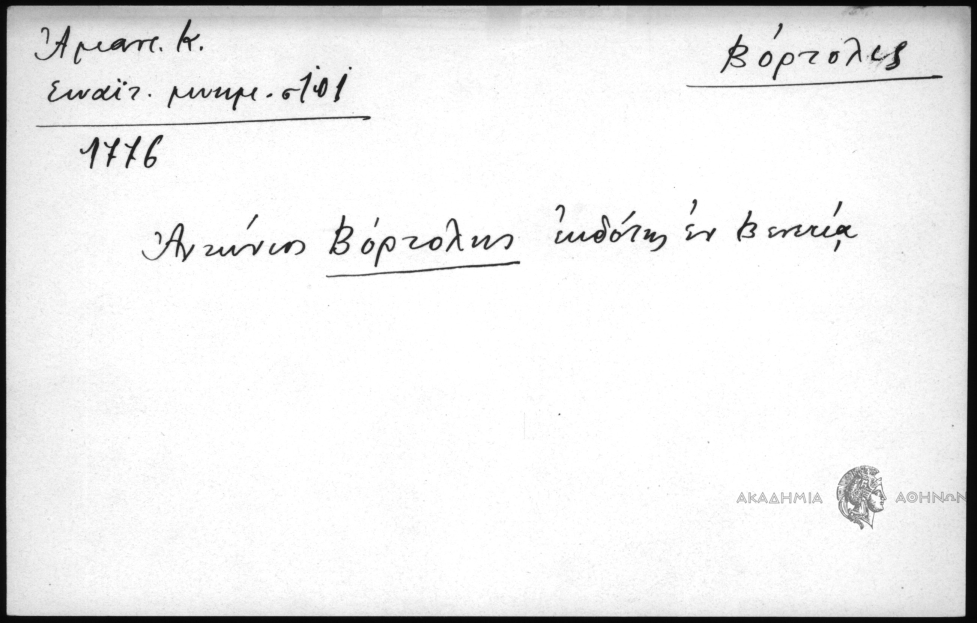 Ἄμαντ. Κ.
Σιναϊτ. μνημ. σ. 101
Βόρτολης
1776
Ἀντώνιος Βόρτολης ἐκδότης ἐν Βενετίᾳ
ΑΚΑΔΗΜΙΑ ΑΘΗΝΩΝ